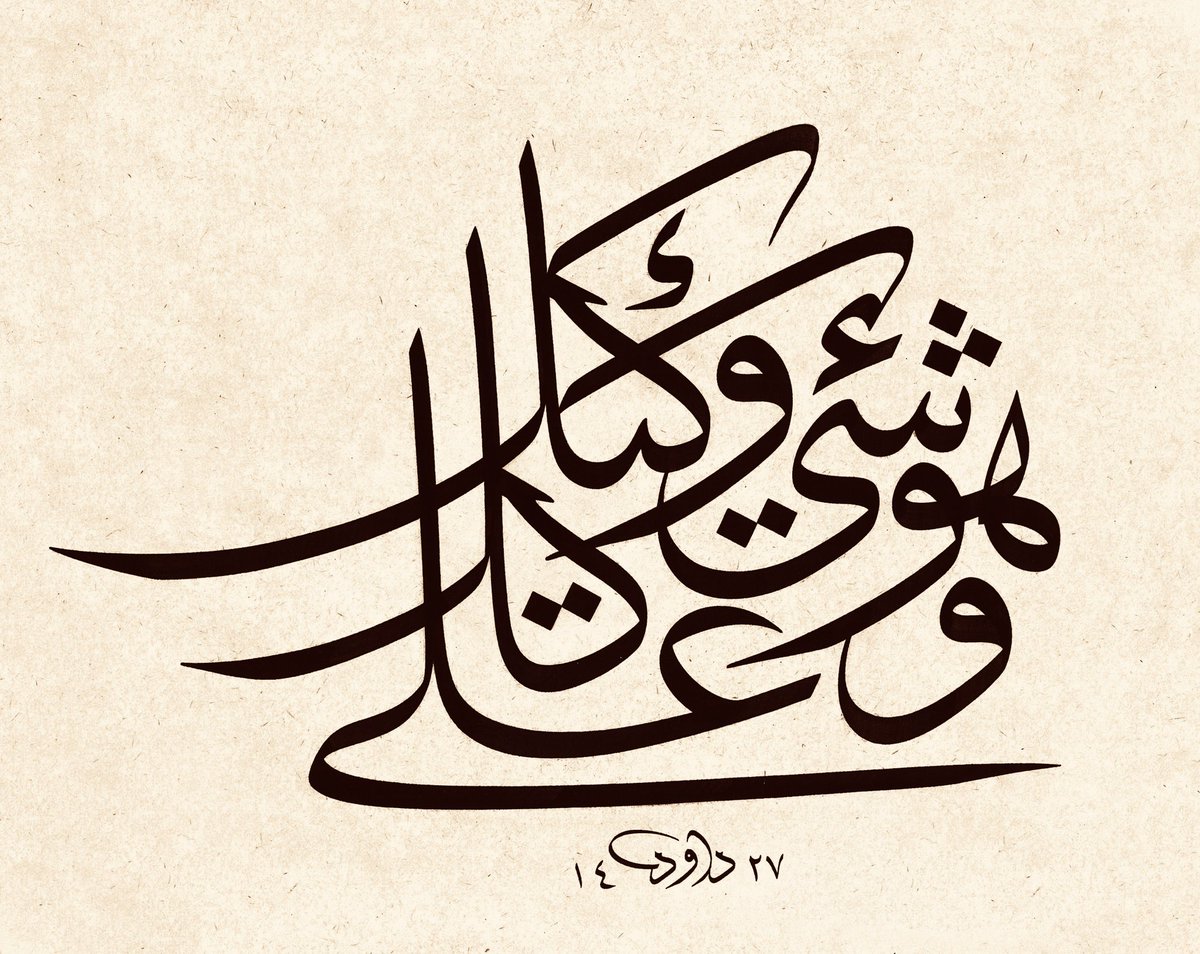 وهو على كل شيء وكيل
١٤ داود ٢٧